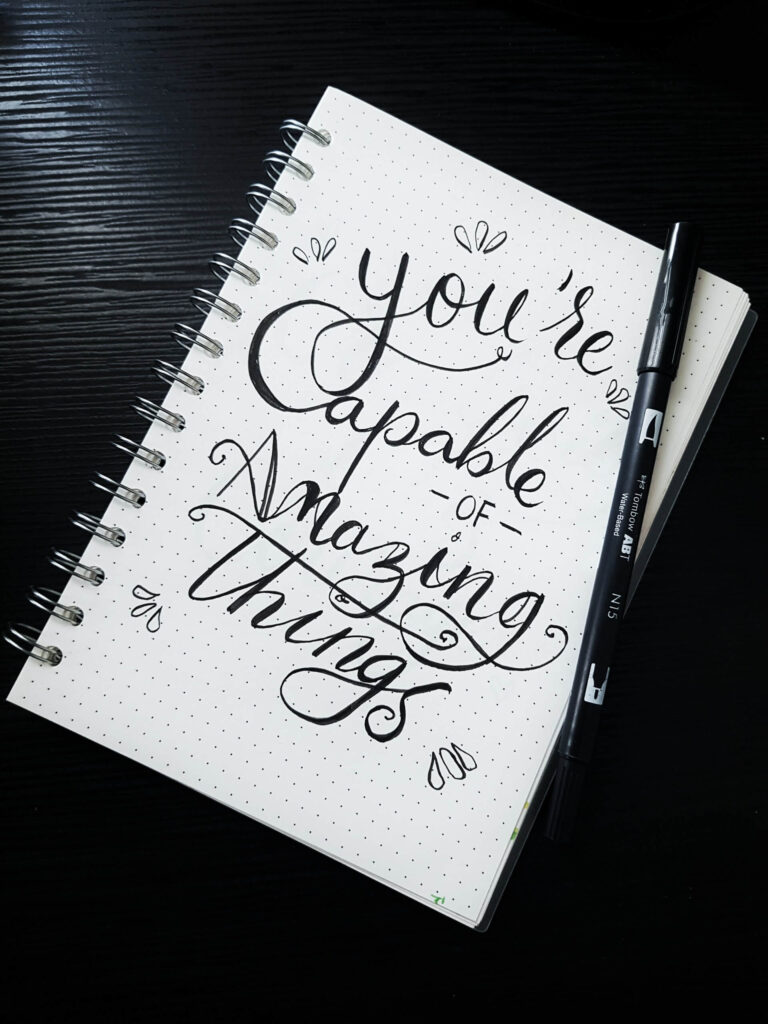 you're
Capable
- OF -
Amazing
things
Tombow ABT
Water-Based
N15